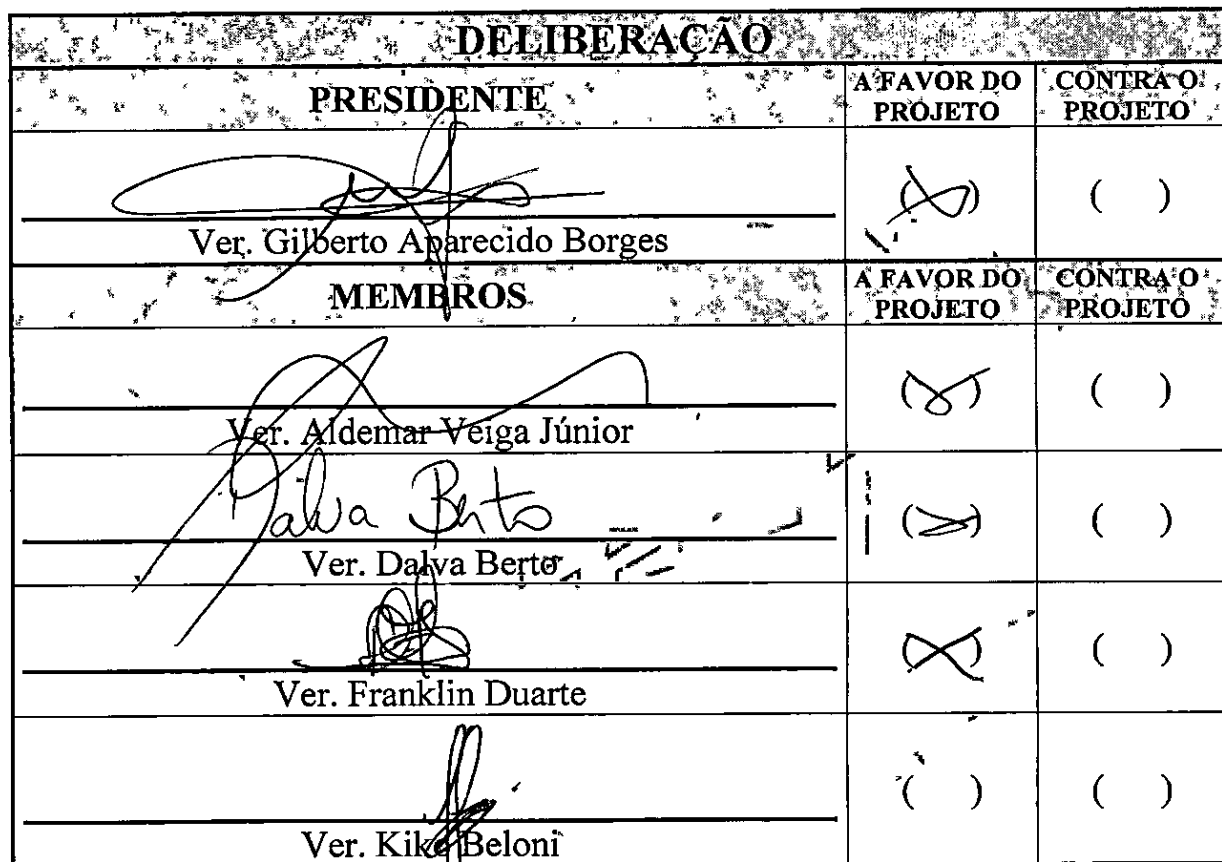 DELIBERAÇÃO
PRESIDENTE A FAVOR DO PROJETO CONTRA O PROJETO
( ) ( )
Ver. Gilberto Aparecido Borges
MEMBROS A FAVOR DO PROJETO CONTRA O PROJETO
(X) ( )
Ver. Aldemar Veiga Júnior
Dalva Berto ( ) ( )
Ver. Dalva Berto
(X) ( )
Ver. Franklin Duarte
( ) ( )
Ver. Kiko Beloni